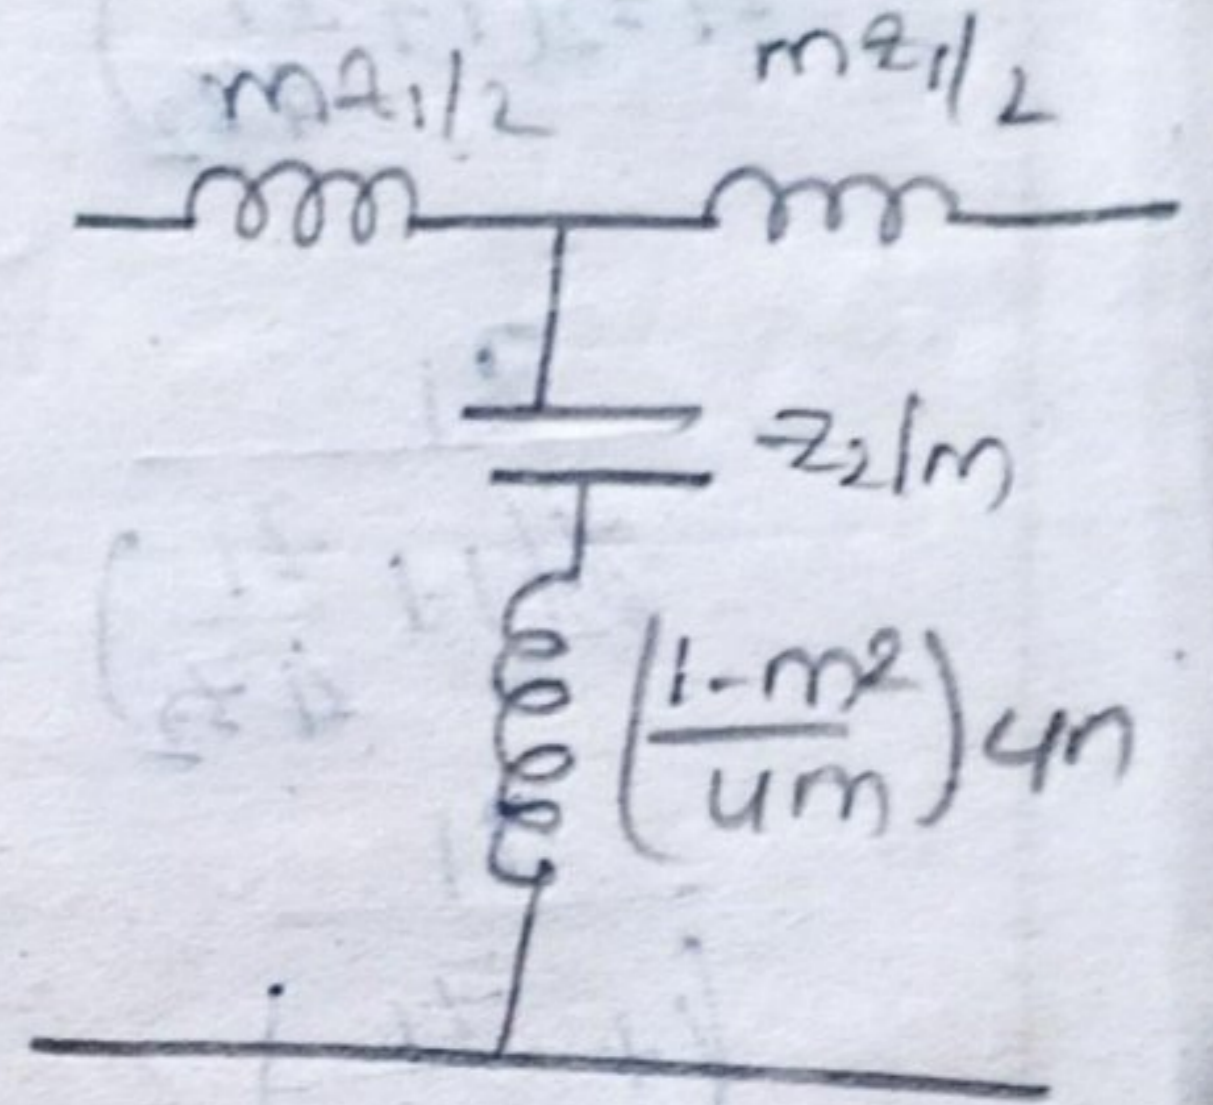 mz₁/2
mz₁/2
z₂/m
(1-m²/4m)4n